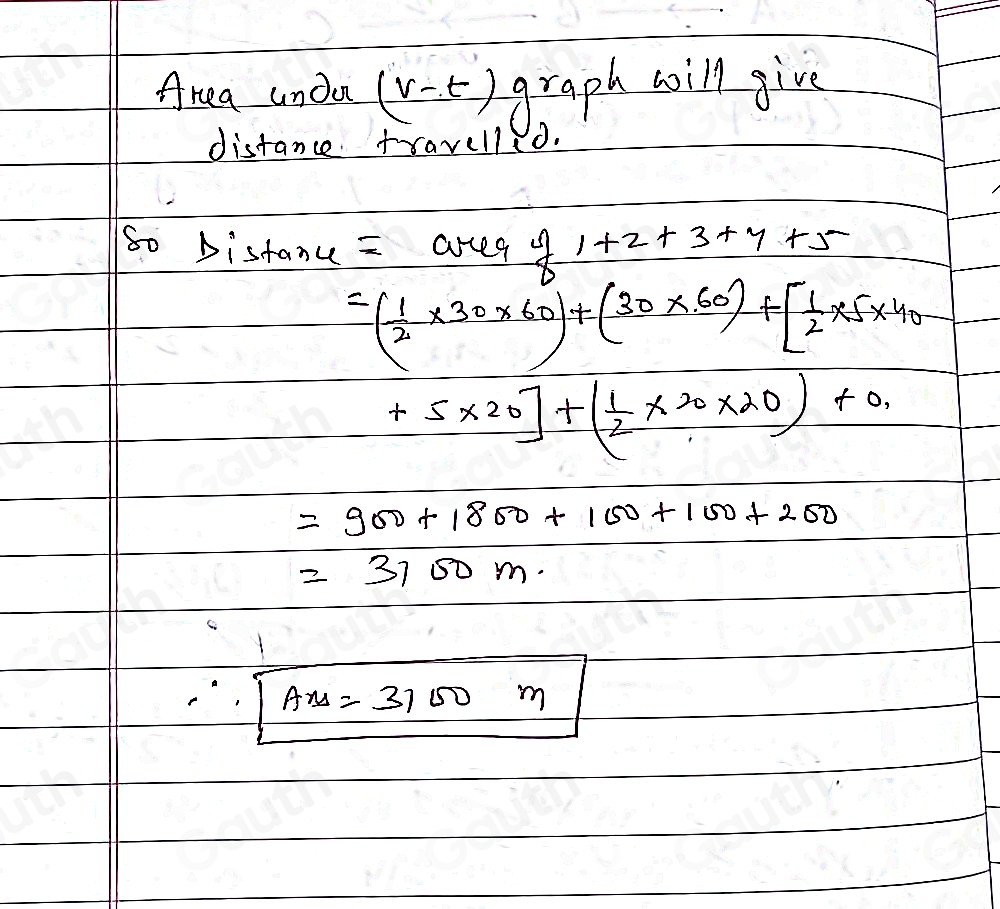 Area under (v-t) graph will give
distance travelled.
So Distance = area of 1+2+3+4+5
= (1/2 × 30 × 60) + (30 × 60) + [1/2 × 5 × 40
+ 5 × 20] + (1/2 × 20 × 20) + 0.
= 900 + 1800 + 100 + 100 + 200
= 3100 m.
∴ Ans = 3100 m